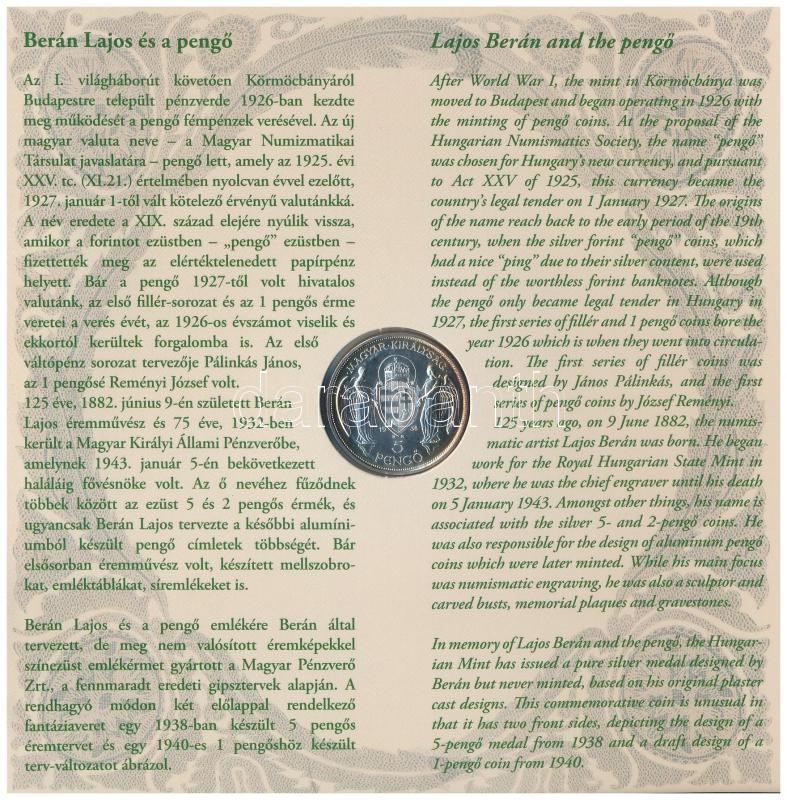 Berán Lajos és a pengő
Az I. világháborút követően Körmöcbányáról
Budapestre települt pénzverde 1926-ban kezdte
meg működését a pengő fémpénzek verésével. Az új
magyar valuta neve – a Magyar Numizmatikai
Társulat javaslatára – pengő lett, amely az 1925. évi
XXV. tc. (XI.21.) értelmében nyolcvan évvel ezelőtt,
1927. január 1-től vált kötelező érvényű valutánkká.
A név eredete a XIX. század elejére nyúlik vissza,
amikor a forintot ezüstben – „pengő” ezüstben –
fizettették meg az elértéktelenedett papírpénz
helyett. Bár a pengő 1927-től volt hivatalos
valutánk, az első fillér-sorozat és az 1 pengős érme
veretei a verés évét, az 1926-os évszámot viselik és
ekkortól kerültek forgalomba is. Az első
váltópénz sorozat tervezője Pálinkás János,
az 1 pengősé Reményi József volt.
125 éve, 1882. június 9-én született Berán
Lajos éremművész és 75 éve, 1932-ben
került a Magyar Királyi Állami Pénzverőbe,
amelynek 1943. január 5-én bekövetkezett
haláláig fővésnöke volt. Az ő nevéhez fűződnek
többek között az ezüst 5 és 2 pengős érmék, és
ugyancsak Berán Lajos tervezte a későbbi alumíni-
umból készült pengő címletek többségét. Bár
elsősorban éremművész volt, készített mellszobro-
kat, emléktáblákat, síremlékeket is.
Berán Lajos és a pengő emlékére Berán által
tervezett, de meg nem valósított éremképekkel
színezüst emlékérmet gyártott a Magyar Pénzverő
Zrt., a fennmaradt eredeti gipsztervek alapján. A
rendhagyó módon két előlappal rendelkező
fantáziaveret egy 1938-ban készült 5 pengős
éremtervet és egy 1940-es 1 pengőshöz készült
terv-változatot ábrázol.
Lajos Berán and the pengő
After World War I, the mint in Körmöcbánya was
moved to Budapest and began operating in 1926 with
the minting of pengő coins. At the proposal of the
Hungarian Numismatics Society, the name “pengő”
was chosen for Hungary's new currency, and pursuant
to Act XXV of 1925, this currency became the
country's legal tender on 1 January 1927. The origins
of the name reach back to the early period of the 19th
century, when the silver forint “pengő” coins, which
had a nice “ping” due to their silver content, were used
instead of the worthless forint banknotes. Although
the pengő only became legal tender in Hungary in
1927, the first series of fillér and 1 pengő coins bore the
year 1926 which is when they went into circula-
tion. The first series of fillér coins was
designed by János Pálinkás, and the first
series of pengő coins by József Reményi.
125 years ago, on 9 June 1882, the numis-
matic artist Lajos Berán was born. He began
work for the Royal Hungarian State Mint in
1932, where he was the chief engraver until his death
on 5 January 1943. Amongst other things, his name is
associated with the silver 5- and 2-pengő coins. He
was also responsible for the design of aluminum pengő
coins which were later minted. While his main focus
was numismatic engraving, he was also a sculptor and
carved busts, memorial plaques and gravestones.
In memory of Lajos Berán and the pengő, the Hungar-
ian Mint has issued a pure silver medal designed by
Berán but never minted, based on his original plaster
cast designs. This commemorative coin is unusual in
that it has two front sides, depicting the design of a
5-pengő medal from 1938 and a draft design of a
1-pengő coin from 1940.
MAGYAR·KIRÁLYSÁG
5
PENGŐ